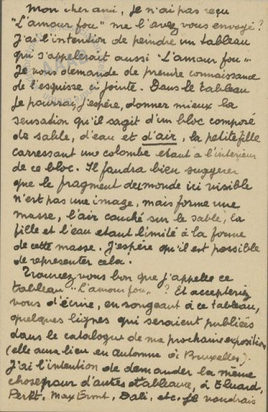 Mon cher ami, je n'ai pas reçu
"L'amour fou" me l'avez vous envoyé?
J'ai l'intention de peindre un tableau
qui s'appelerait aussi "L'amour fou"
Je vous demande de prendre connaissance
de l'esquisse ci jointe. Dans le tableau
je pourrai, j'espère, donner mieux la
sensation qu'il s'agit d'un bloc composé
de sable, d'eau et d'air, la petite fille
caressant une colombe étant à l'intérieur
de ce bloc. Il faudra bien suggérer
que le fragment du monde ici visible
n'est pas une image, mais forme une
masse, l'air couché sur le sable, la
fille et l'eau étant limité à la forme
de cette masse. J'espère qu'il est possible
de représenter cela.
Trouvez vous bon que j'appelle ce
tableau "L'amour fou" ? Et accepteriez
vous d'écrire, en songeant à ce tableau,
quelques lignes qui seraient publiées
dans le catalogue de ma prochaine exposition
(elle aura lieu en Automne à Bruxelles)
J'ai l'intention de demander la même
chose pour d'autres tableaux, à Eluard,
Max Ernst, Dali, etc. Je voudrais